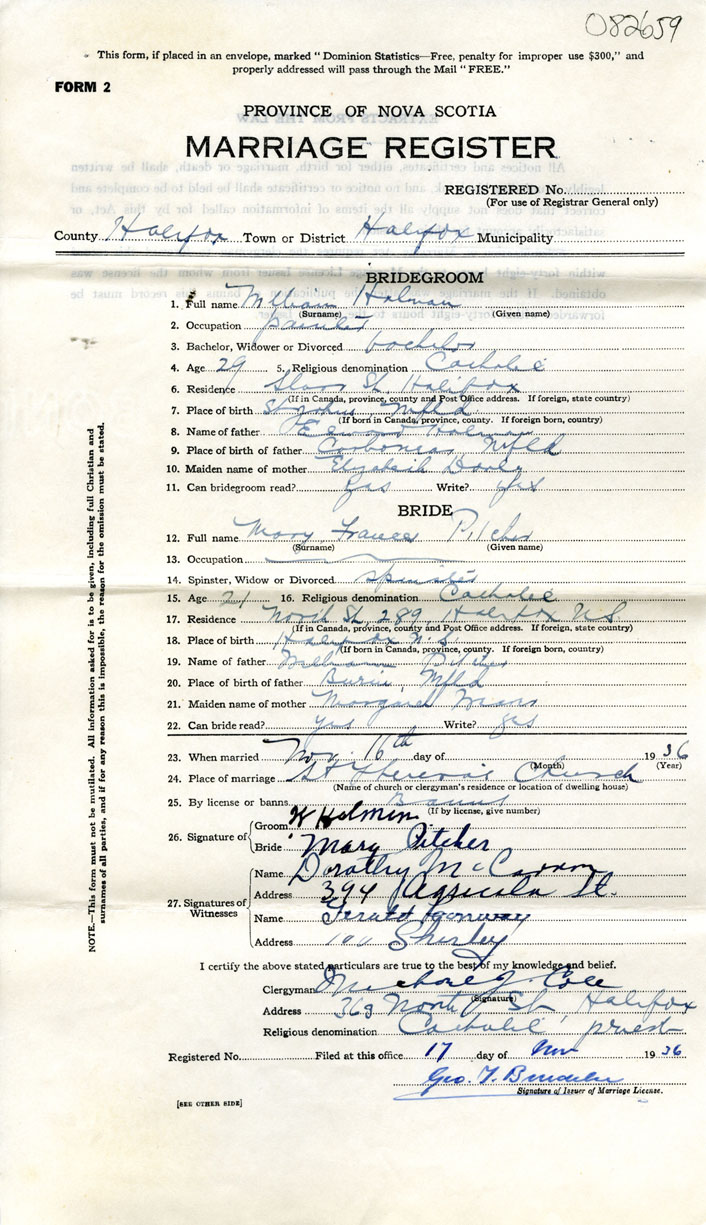 082659
This form, if placed in an envelope, marked " Dominion Statistics—Free, penalty for improper use $300," and
properly addressed will pass through the Mail " FREE."
FORM 2
PROVINCE OF NOVA SCOTIA
MARRIAGE REGISTER
REGISTERED No.
(For use of Registrar General only)
County Halifax Town or District Halifax Municipality
BRIDEGROOM
1. Full name William Holman
(Surname) (Given name)
2. Occupation painter
3. Bachelor, Widower or Divorced bachelor
4. Age 29 5. Religious denomination Catholic
6. Residence St. Halifax
(If in Canada, province, county and Post Office address. If foreign, state country)
7. Place of birth St Johns Nfld
(If born in Canada, province, county. If foreign born, country)
8. Name of father Holman
9. Place of birth of father Carbonear Nfld
10. Maiden name of mother Elizabeth
11. Can bridegroom read? yes Write? yes
BRIDE
12. Full name Mary Frances Pitcher
(Surname) (Given name)
13. Occupation
14. Spinster, Widow or Divorced spinster
15. Age 21 16. Religious denomination Catholic
17. Residence North St. 289, Halifax N.S.
(If in Canada, province, county and Post Office address. If foreign, state country)
18. Place of birth Halifax N.S.
(If born in Canada, province, county. If foreign born, country)
19. Name of father William Pitcher
20. Place of birth of father Burin, Nfld
21. Maiden name of mother Margaret
22. Can bride read? yes Write? yes
23. When married Nov. 16th day of 1936
(Month) (Year)
24. Place of marriage St Theresa's Church
(Name of church or clergyman's residence or location of dwelling house)
25. By license or banns Banns
(If by license, give number)
26. Signature of Groom W Holman
Bride Mary Pitcher
27. Signatures of Witnesses Name Dorothy
Address 394 Agricola St.
Name Gerald Conway
Address Shirley
I certify the above stated particulars are true to the best of my knowledge and belief.
Clergyman Michael J. Cole
(Signature)
Address 369 North St. Halifax
Religious denomination Catholic priest
Registered No. Filed at this office 17 day of Nov 1936
Geo. F.
Signature of Issuer of Marriage License.
[SEE OTHER SIDE]
NOTE.—This form must not be mutilated. All information asked for is to be given, including full Christian and
surnames of all parties, and if for any reason this is impossible, the reason for the omission must be stated.